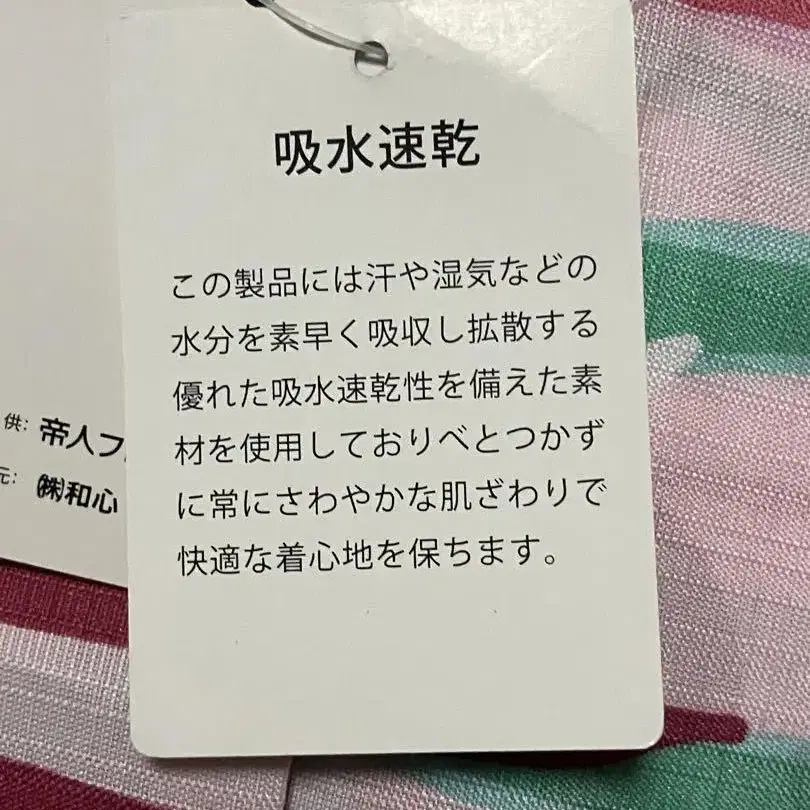 吸水速乾
この製品には汗や湿気などの
水分を素早く吸収し拡散する
優れた吸水速乾性を備えた素
材を使用しておりべとつかず
に常にさわやかな肌ざわりで
快適な着心地を保ちます。
供: 帝人フ
元: ㈱和心